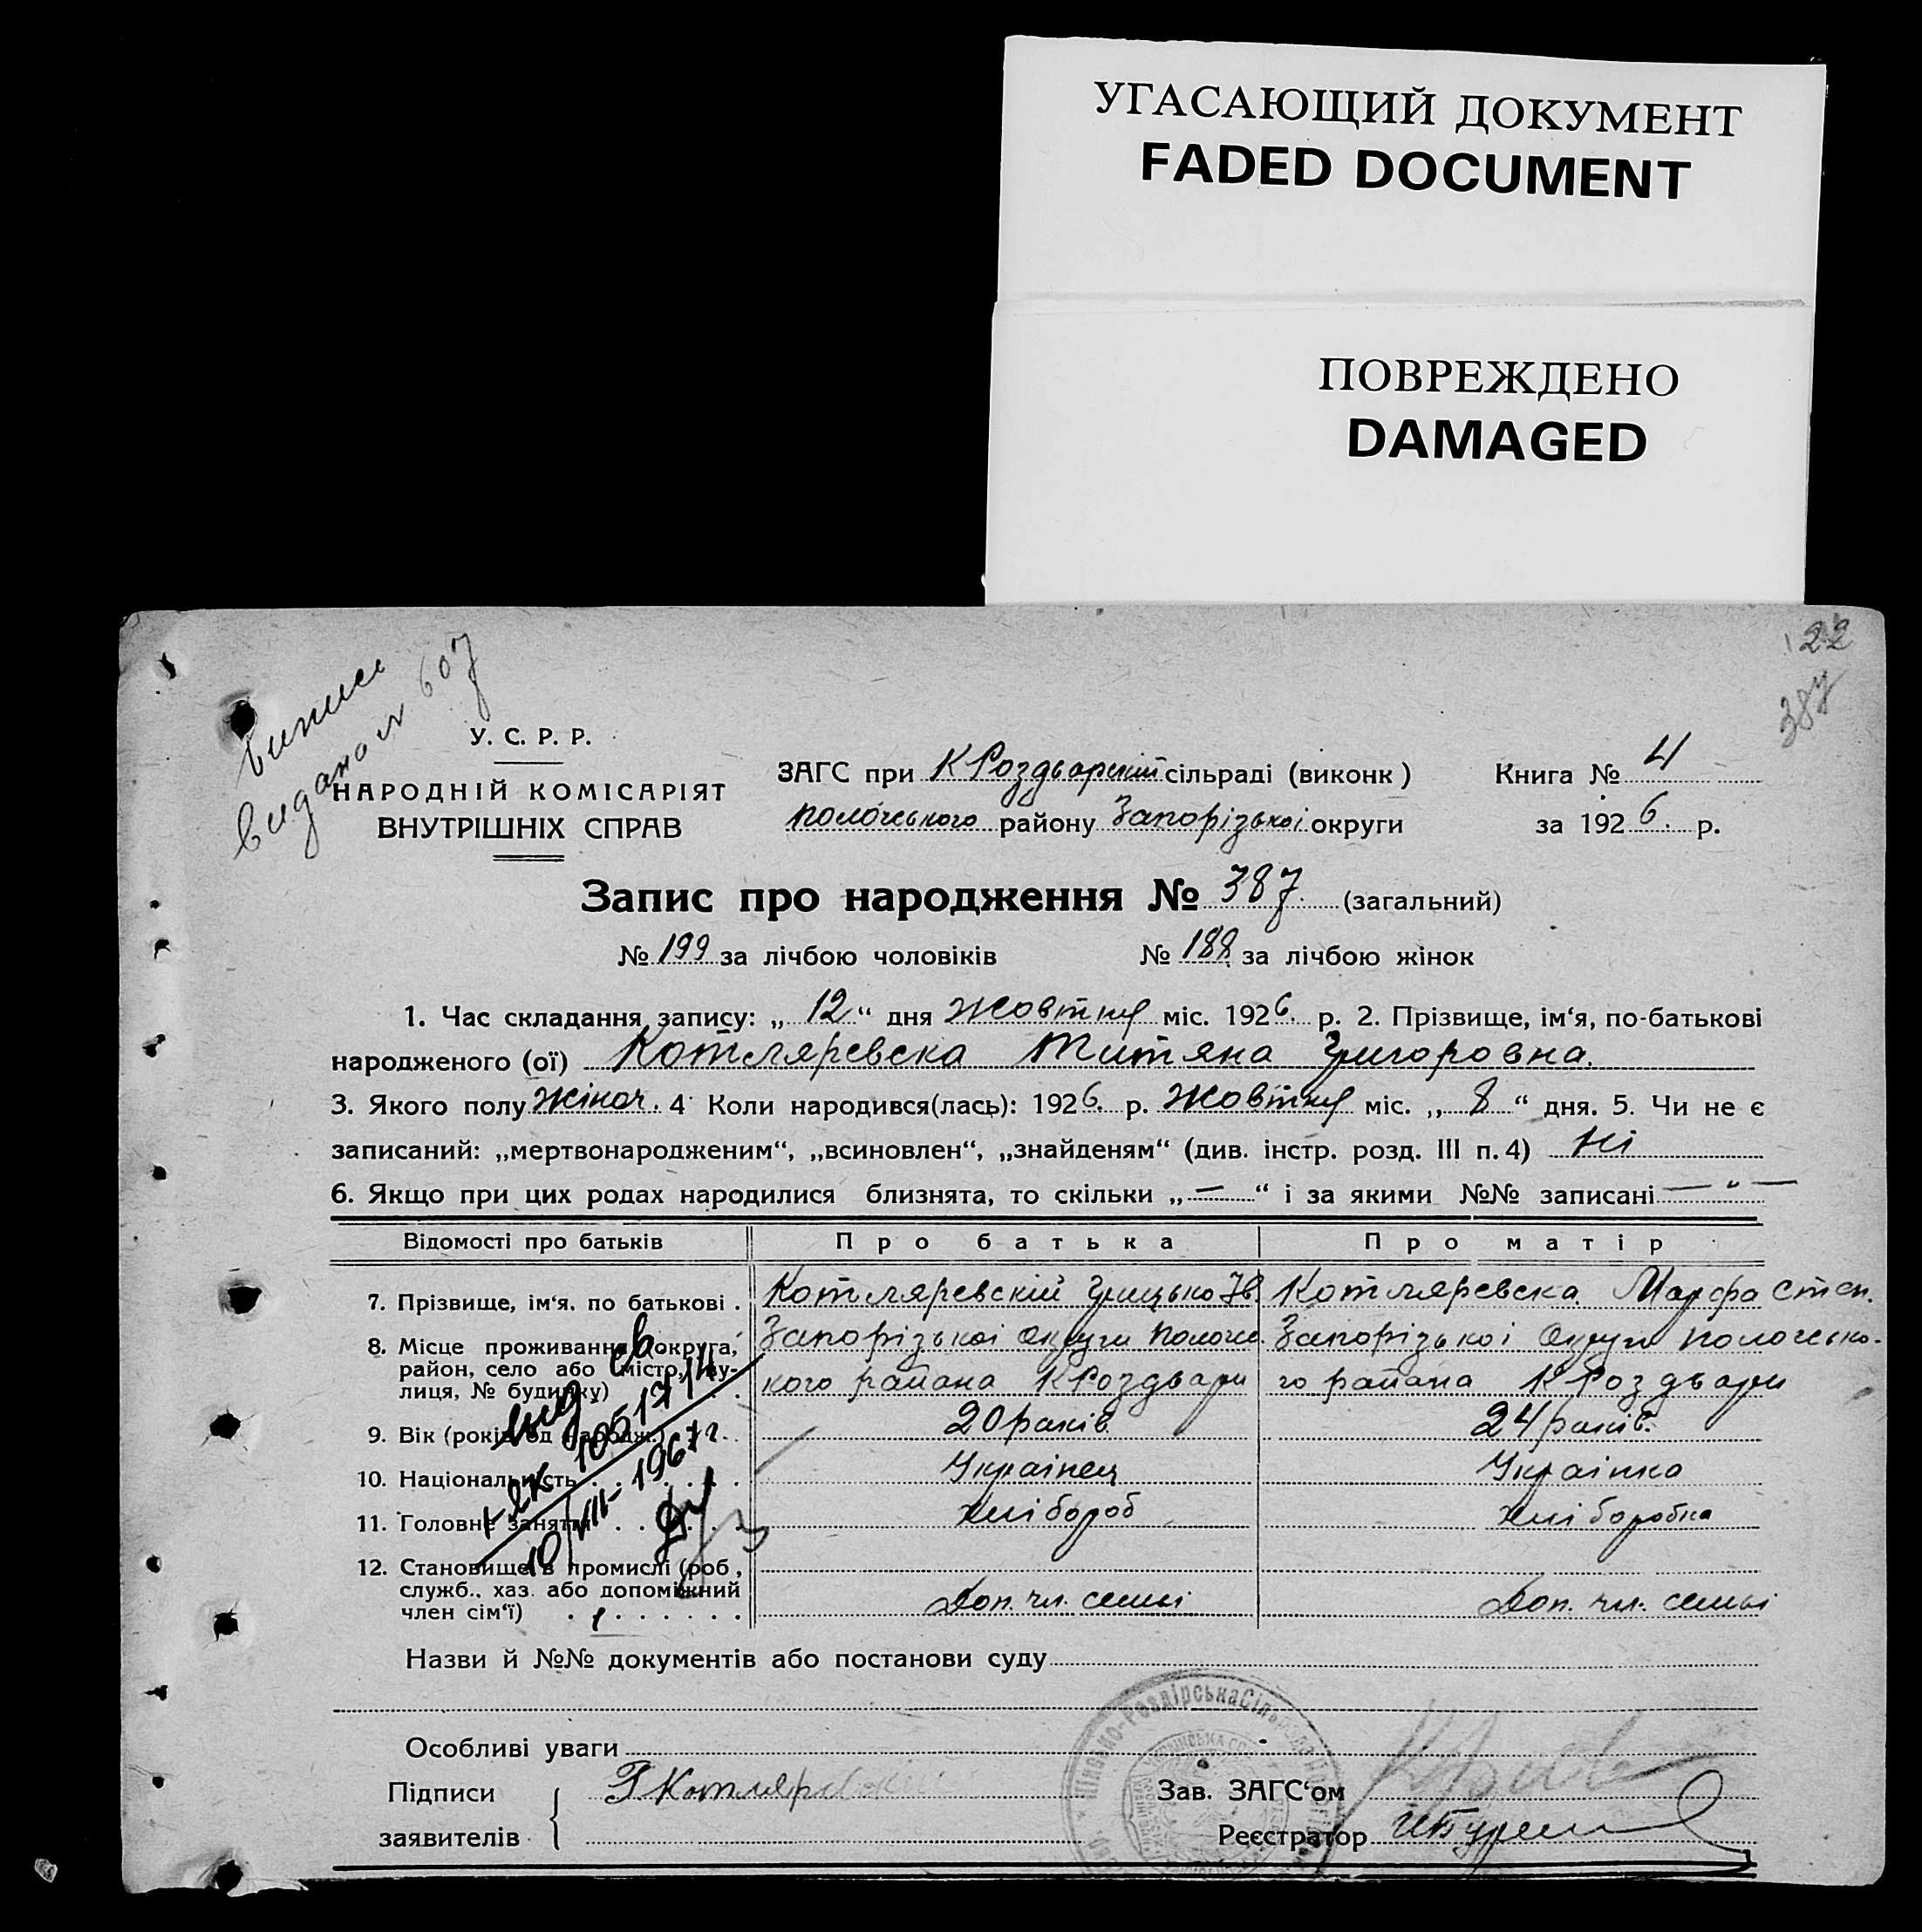 УГАСАЮЩИЙ ДОКУМЕНТ
FADED DOCUMENT
ПОВРЕЖДЕНО
DAMAGED
22
387
випись
видано 607
У. С. Р. Р.
НАРОДНІЙ КОМІСАРІЯТ
ВНУТРІШНІХ СПРАВ
ЗАГС при КРоздварский сільраді (виконк) Книга № 4
Полочського району Запорізькоі округи за 1926. р.
Запис про народження № 387. (загальний)
№ 199 за лічбою чоловіків № 188 за лічбою жінок
1. Час складання запису: „ 12 “ дня Жовтня міс. 1926. р. 2. Прізвище, ім‘я, по-батькові
народженого (ої) Котляревска Титяна Григоровна.
3. Якого полу жіноч. 4 Коли народився(лась): 1926. р. Жовтня міс. „ 8 “ дня. 5. Чи не є
записаний: „мертвонародженим“, „всиновлен“, „знайденям“ (див. інстр. розд. III п. 4) Ні
6. Якщо при цих родах народилися близнята, то скільки „ — “ і за якими №№ записані — “ —
Відомості про батьків Про батька Про матір
7. Прізвище, ім‘я, по батькові . Котляревскій Грицько Ів. Котляревска Марфа Степ.
8. Місце проживання (округа, Запорізькоі Округи Полочс. Запорізькоі Округи Полочсько-
район, село або місто, ву-
лиця, № будинку) кого района КРоздвари го района КРоздвари
9. Вік (років од народж.) 20 років. 24 років.
10. Національність Українец Українка
11. Головне заняття хлібороб хліборобка
12. Становище в промислі (роб,
служб., хаз. або допоміжний
член сім‘ї) Доп. чл. семьі Доп. чл. семьі
св.
10517/14
10/VIII-1967 г.
Назви й №№ документів або постанови суду
Особливі уваги
Підписи Г Котляревский Зав. ЗАГС‘ом
заявителів Реєстратор